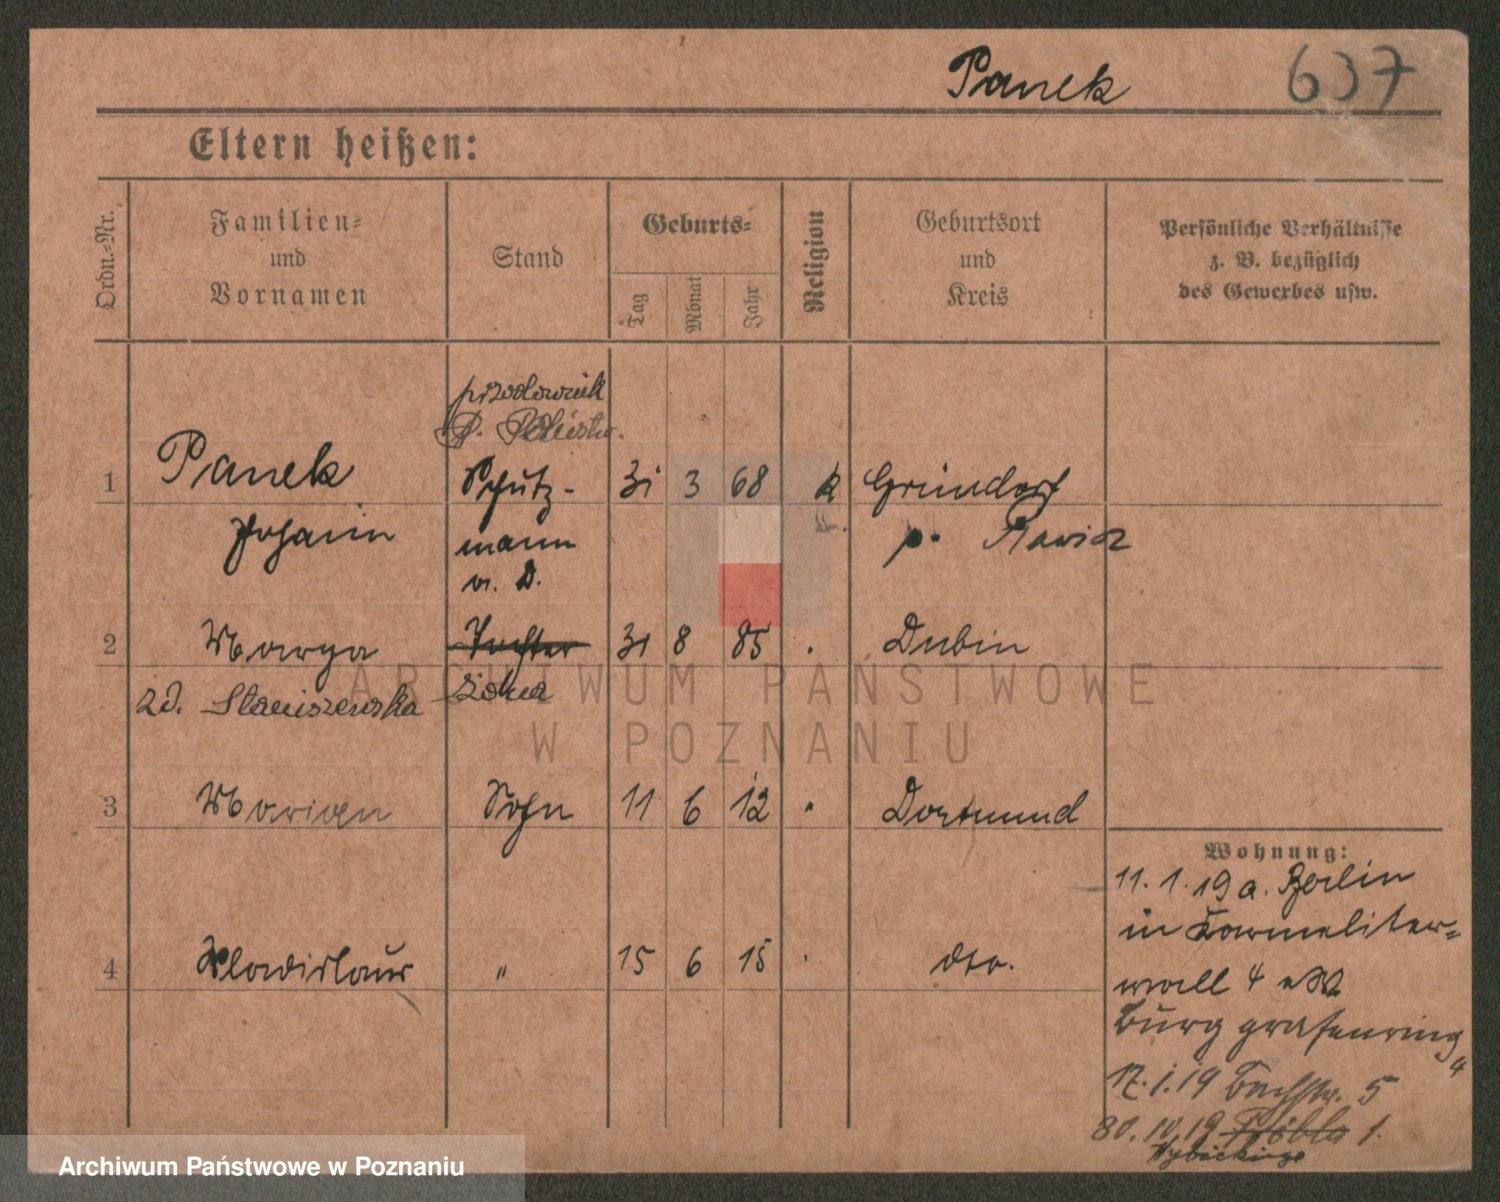 Panek 637
Eltern heißen:
Ordn.-Nr.
Familien-
und
Vornamen
Stand
Geburts-
Tag
Monat
Jahr
Religion
Geburtsort
und
Kreis
Persönliche Verhältnisse
z. B. bezüglich
des Gewerbes usw.
przodownik
1 Panek Schutz- 31 3 68 k Gründorf
Johann mann p. Rawicz
a. D.
2 Marya Tochter 31 8 85 . Dubin
zd. Staniszewska żona
3 Marian Sohn 11 6 12 " Dortmund
4 Wladislaus " 15 6 15 . dto.
Wohnung:
11.1.19 a. Berlin
in Karmeliter-
wall 4
Burggrafenring
4
17.1.19 Bachstr. 5
30.10.19 1.
Wybickiego
ARCHIWUM PAŃSTWOWE
W POZNANIU
Archiwum Państwowe w Poznaniu